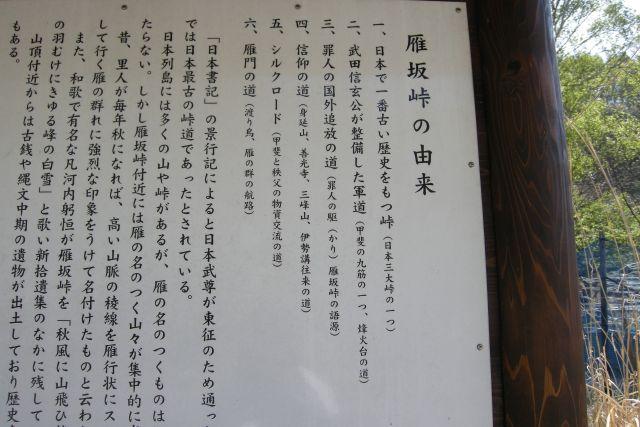 雁坂峠の由来
一、日本で一番古い歴史をもつ峠（日本三大峠の一つ）
二、武田信玄公が整備した軍道（甲斐の九筋の一つ、烽火台の道）
三、罪人の国外追放の道（罪人の駆（かり）雁坂峠の語源）
四、信仰の道（身延山、善光寺、三峰山、伊勢講往来の道）
五、シルクロード（甲斐と秩父の物資交流の道）
六、雁門の道（渡り鳥、雁の群の航路）
「日本書記」の景行記によると日本武尊が東征のため通っ
では日本最古の峠道であったとされている。
日本列島には多くの山や峠があるが、雁の名のつくものは
たらない。しかし雁坂峠付近には雁の名のつく山々が集中的に
昔、里人が毎年秋になれば、高い山脈の稜線を雁行状にス
して行く雁の群れに強烈な印象をうけて名付けたものと云わ
また、和歌で有名な凡河内躬恒が雁坂峠を「秋風に山飛び
の羽むけにきゆる峰の白雪」と歌い新拾遺集のなかに残して
山頂付近からは古銭や縄文中期の遺物が出土しており歴史
もある。